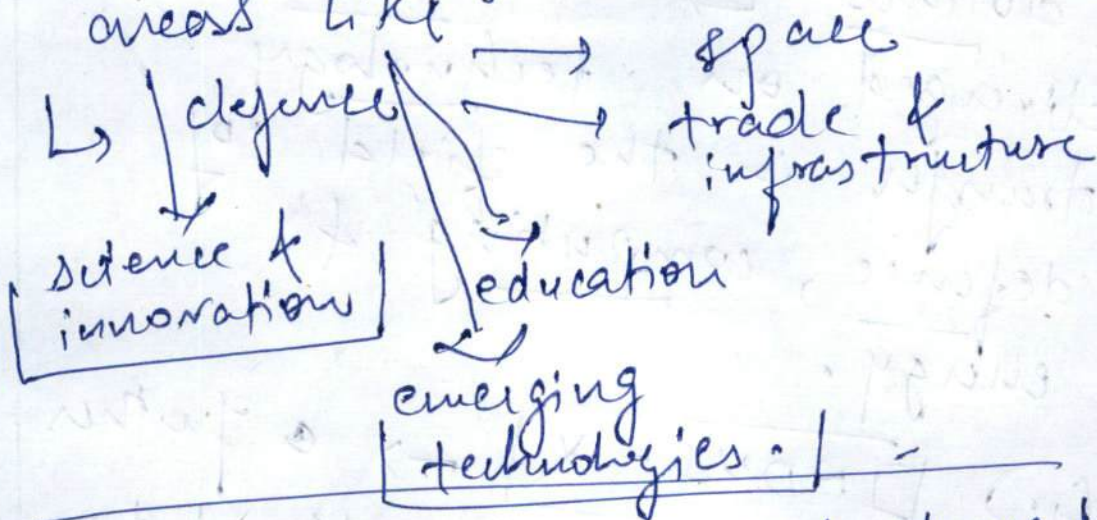 areas like
space
defence
trade &
infrastructure
science &
innovation
education
emerging
technologies.
energy.